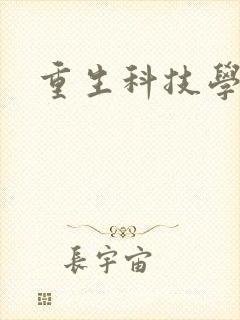 重生科技學
長宇宙